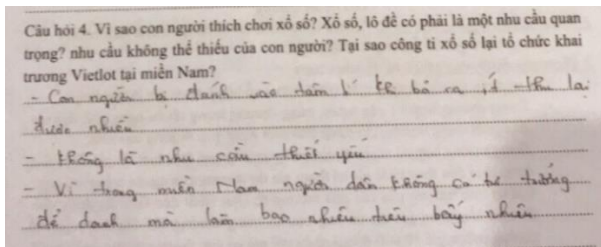 Câu hỏi 4. Vì sao con người thích chơi xổ số? Xổ số, lô đề có phải là một nhu cầu quan
trọng? nhu cầu không thể thiếu của con người? Tại sao công ti xổ số lại tổ chức khai
trương Vietlot tại miền Nam?
- Con người bị đánh vào tâm lí bỏ ra ít thu lại
được nhiều
- Không là nhu cầu thiết yếu
- Vì trong miền Nam người dân không có tư tưởng
để dành mà làm bao nhiêu tiêu bấy nhiêu